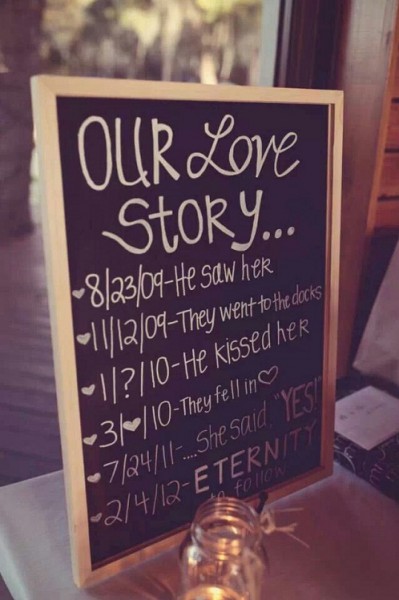 OUR Love
StoRy...
♥8/23/09-He saw her
♥11/12/09-They went to the docks
♥1/?/10-He kissed her
♥3/♥/10-They fell in♡
♥7/24/11-....She said "YES!"
♥2/4/12-ETERNITY
to follow